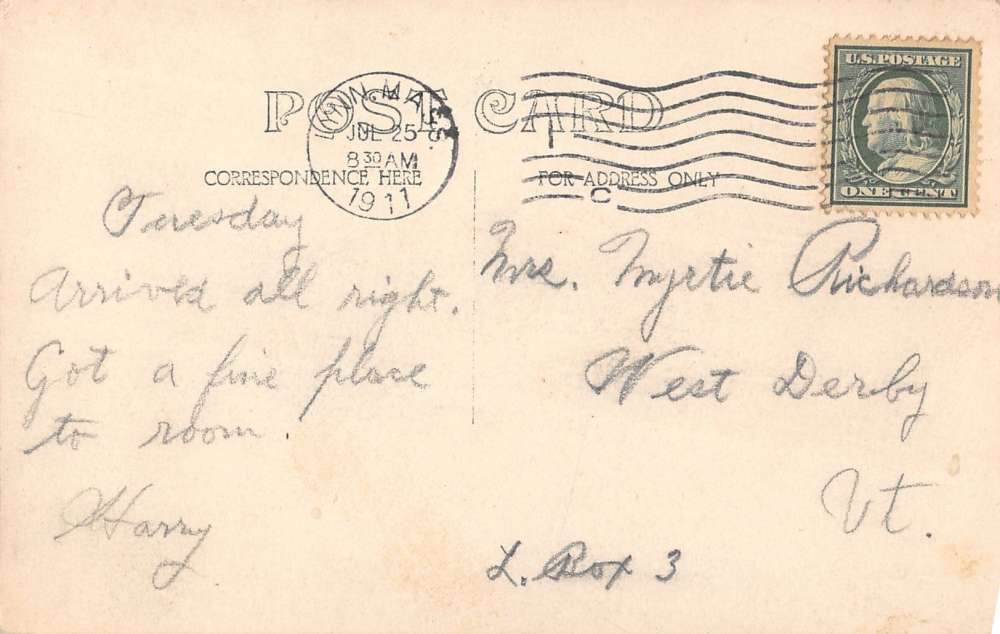 POST CARD
LYNN, MASS.
JUL 25
8 30 AM
1911
C
U.S. POSTAGE
ONE CENT
CORRESPONDENCE HERE
FOR ADDRESS ONLY
Tuesday
Arrived all right.
Got a fine place
to room.
Harry
Mrs. Myrtie Richardson
West Derby
Vt.
L. Box 3